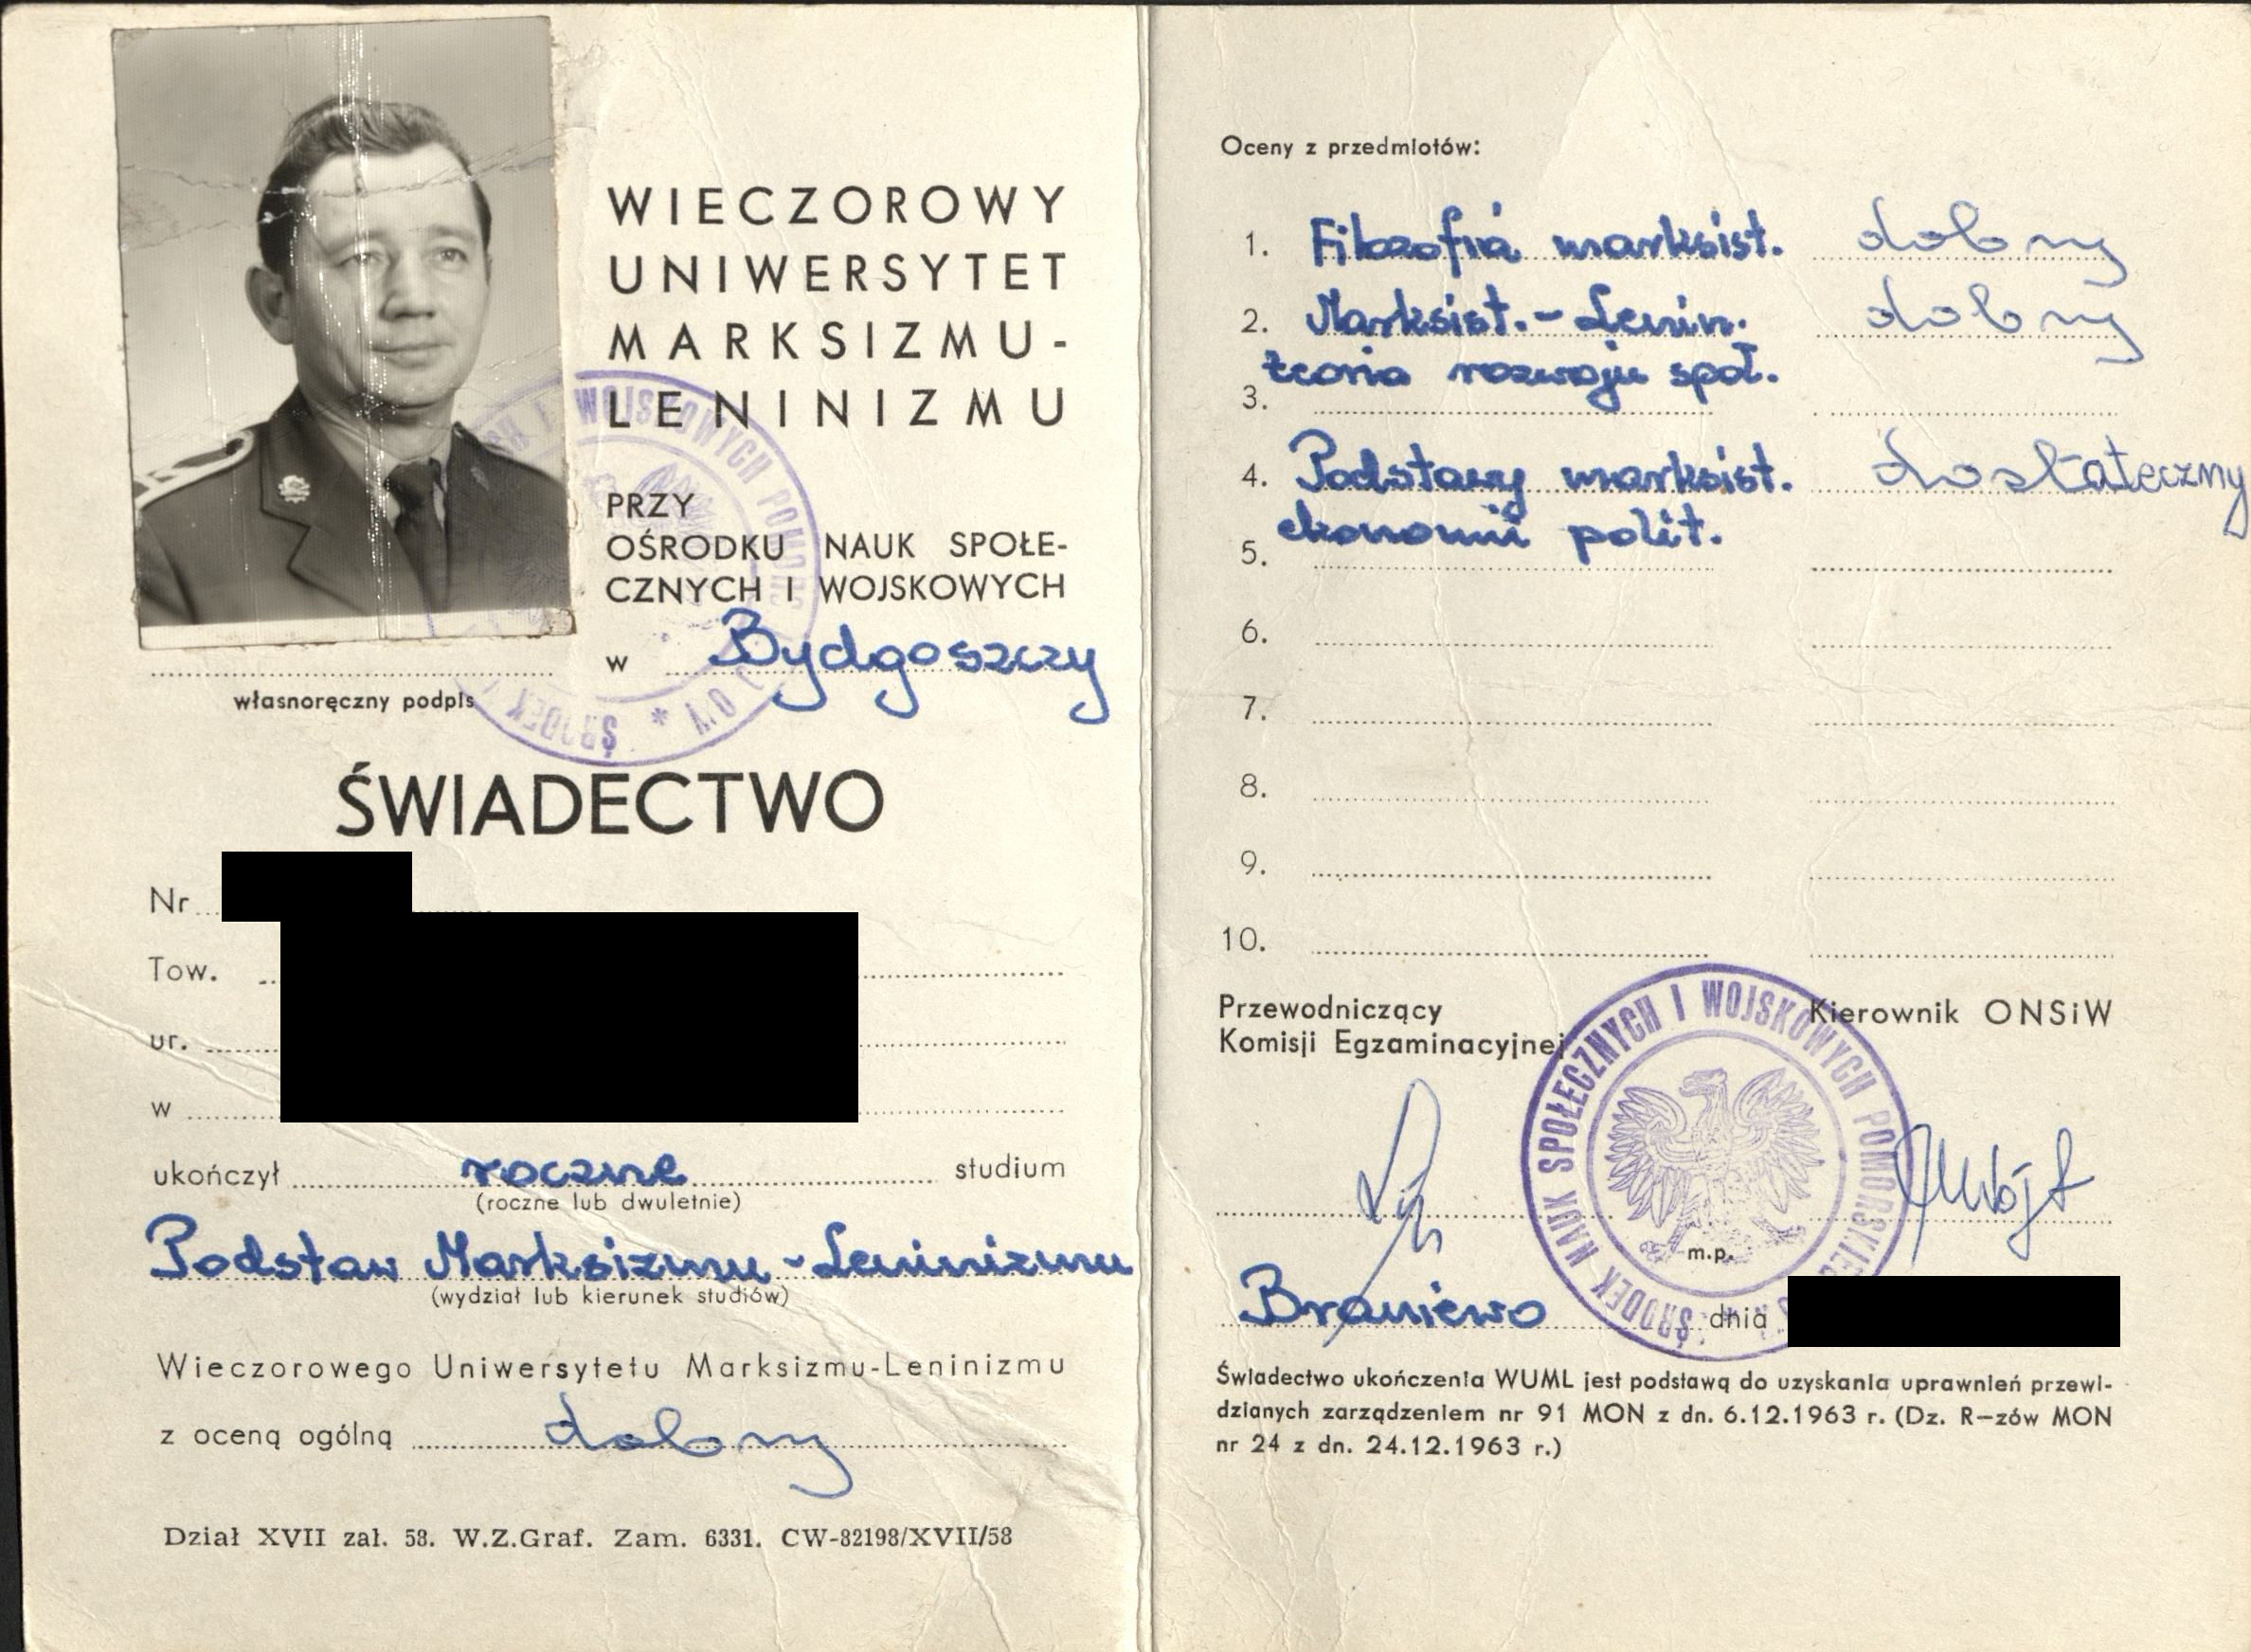 WIECZOROWY
UNIWERSYTET
MARKSIZMU-
LENINIZMU
PRZY
OŚRODKU NAUK SPOŁE-
CZNYCH I WOJSKOWYCH
w Bydgoszczy
własnoręczny podpis
ŚWIADECTWO
Nr
Tow.
ur.
w
ukończył roczne studium
(roczne lub dwuletnie)
Podstaw Marksizmu-Leninizmu
(wydział lub kierunek studiów)
Wieczorowego Uniwersytetu Marksizmu-Leninizmu
z oceną ogólną dobry
Dział XVII zał. 58. W.Z.Graf. Zam. 6331. CW-82198/XVII/58
Oceny z przedmiotów:
1. Filozofia marksist. dobry
2. Marksist.-Lenin. dobry
teoria rozwoju społ.
3.
4. Podstawy marksist. dostateczny
ekonomii polit.
5.
6.
7.
8.
9.
10.
Przewodniczący
Komisji Egzaminacyjnej
Kierownik ONSiW
OŚRODEK NAUK SPOŁECZNYCH I WOJSKOWYCH POMORSKIEGO
m.p.
Braniewo dnia
Świadectwo ukończenia WUML jest podstawą do uzyskania uprawnień przewi-
dzianych zarządzeniem nr 91 MON z dn. 6.12.1963 r. (Dz. R-zów MON
nr 24 z dn. 24.12.1963 r.)